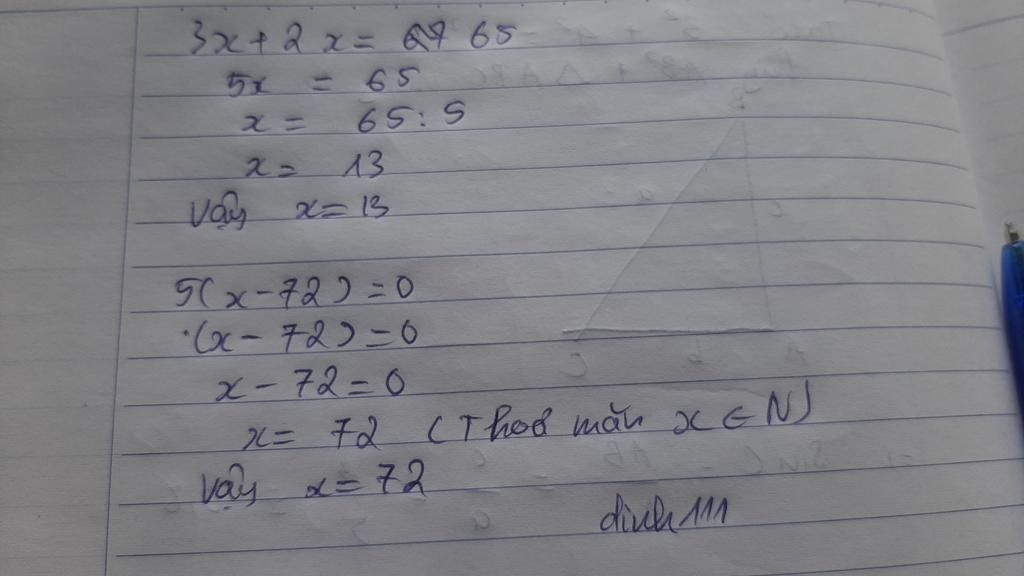 3x + 2x = 65
5x = 65
x = 65 : 5
x = 13
Vậy x = 13
5(x - 72) = 0
(x - 72) = 0
x - 72 = 0
x = 72 (Thoả mãn x ∈ N)
Vậy x = 72
dinh111